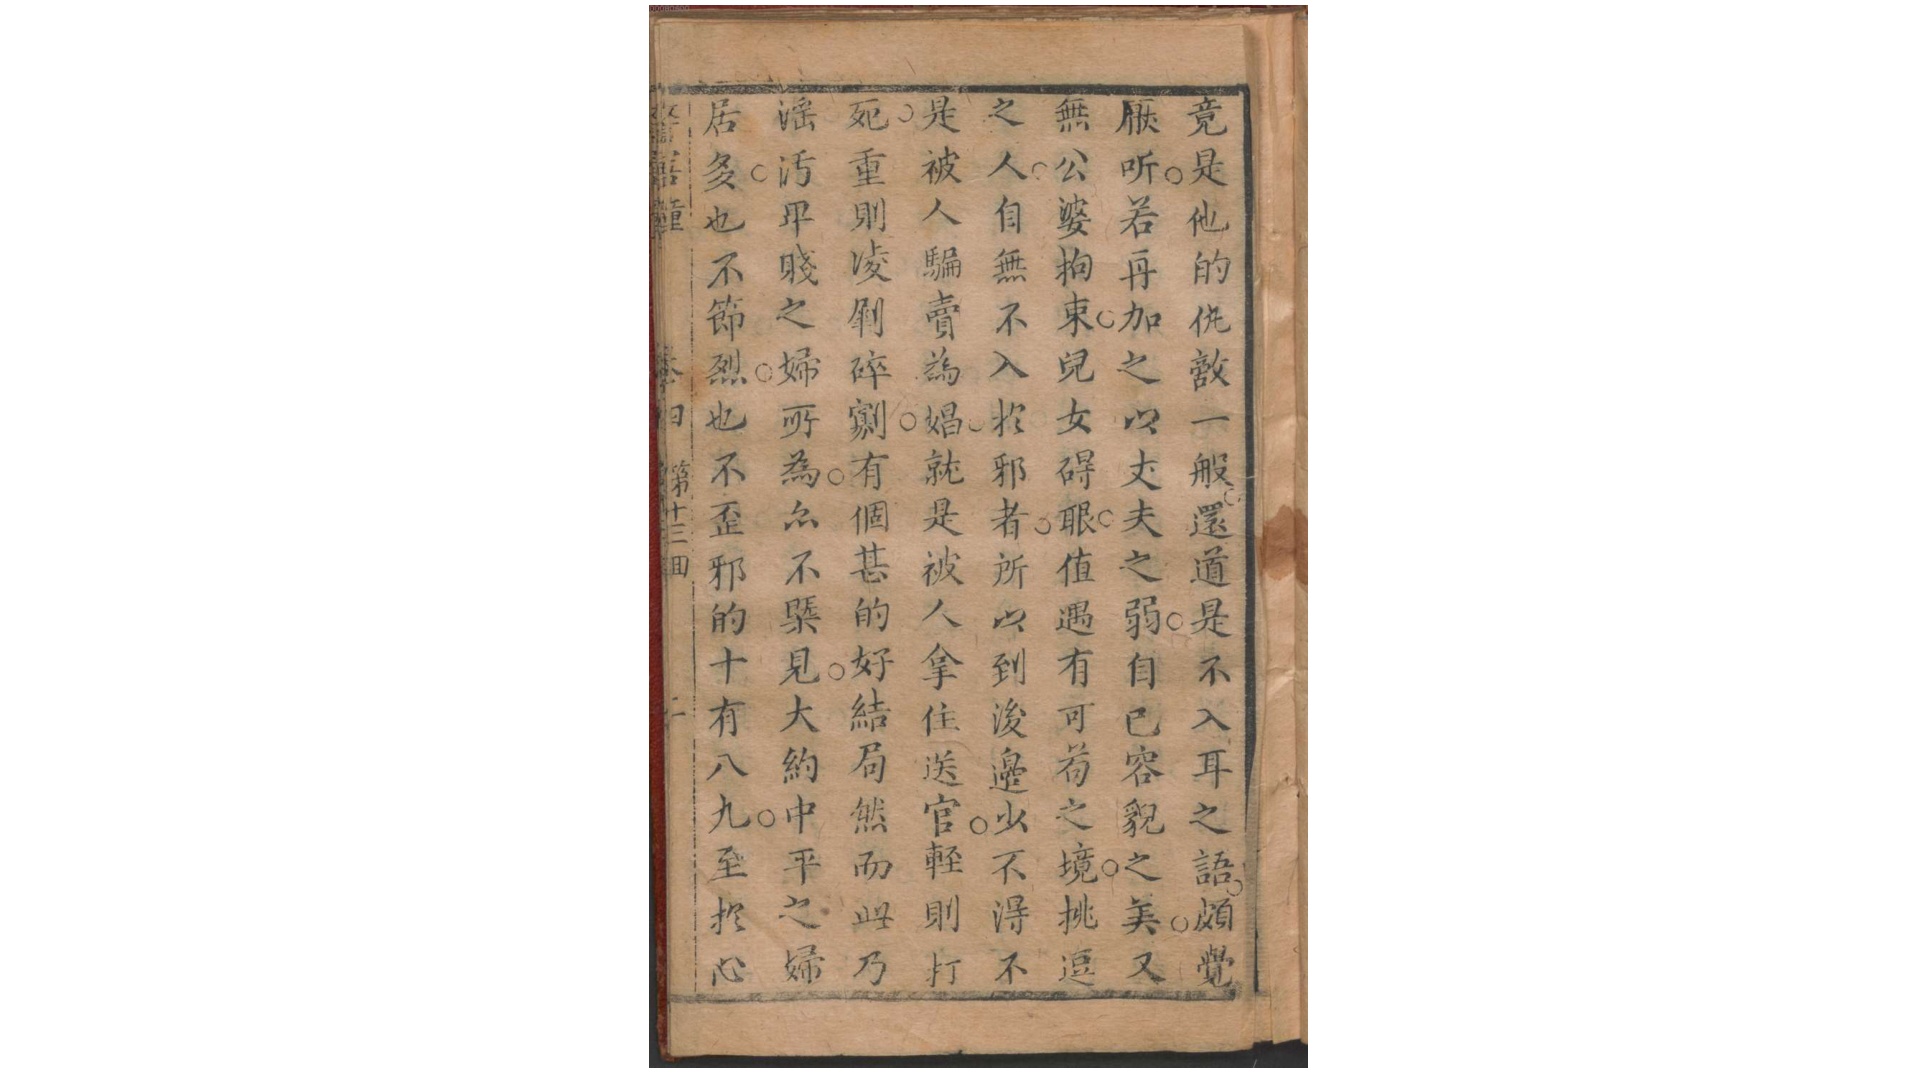 竟是他的仇敵一般還道是不入耳之語頗覺
厭听若再加之以丈夫之弱自已容貌之美又
無公婆拘束兒女碍眼值遇有可苟之境挑逗
之人自無不入於邪者所以到後邊少不得不
是被人騙賣為娼就是被人拿住送官輕則打
死重則凌剮碎剮有個甚的好結局然而此乃
淫污卑賤之婦所為亦不槩見大約中平之婦
居多也不節烈也不歪邪的十有八九至於心
卷四 第十三回